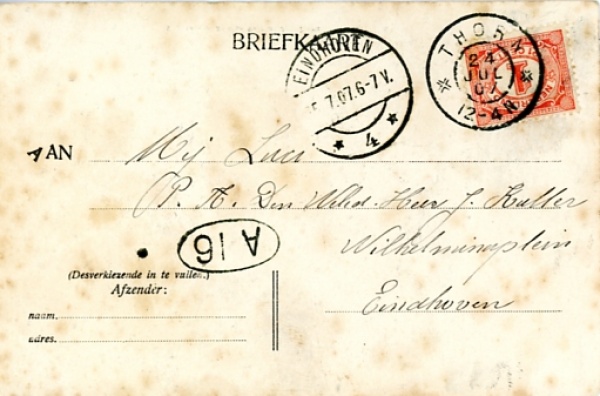 BRIEFKAART
EINDHOVEN
7.07.6-7V.
4
THORN
24
JUL
07
12-4N
AAN Mej Luci
P. A. Den Weled. Heer J.
Wilhelminaplein
Eindhoven
A16
(Desverkiezende in te vullen.)
Afzender:
naam.
adres.